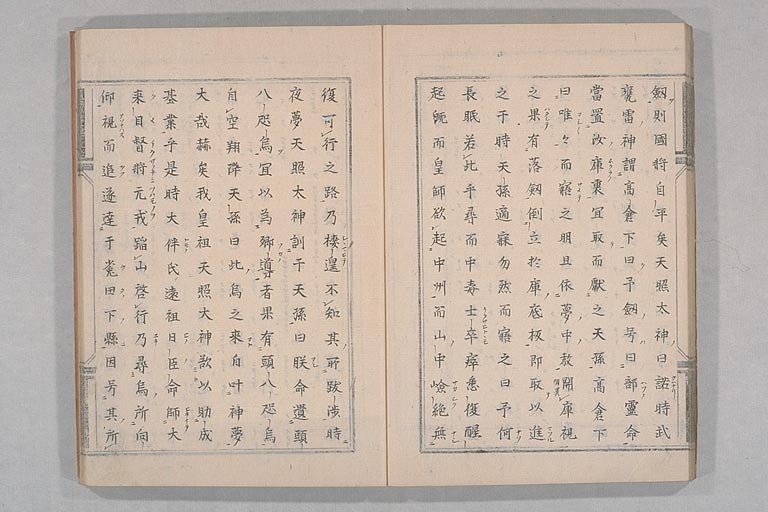 劔則國將自平矣天照太神曰諾時武
甕雷神謂高倉下曰予劔号曰部靈命
當置汝庫裏宜取而獻之天孫高倉下
曰唯々而寤之明旦依夢中敎開庫視
之果有落劔倒立於庫底板即取以進
之于時天孫適寐勿然而寤之曰予何
長眠若此乎尋而中毒士卒瘁悉復醒
起旣而皇師欲起中州而山中嶮絶無
復可行之路乃棲遑不知其所跋渉時
夜夢天照太神訓于天孫曰朕命遣頭
八咫烏宜以為鄉導者果有頭八咫烏
自空翔降天孫曰此烏之來自叶神夢
大哉赫矣我皇祖天照大神欲以助成
基業乎是時大伴氏遠祖日臣命師大
來目督將元戎蹈山啓行乃尋烏所向
仰視而追遂達于菟田下縣因号其所